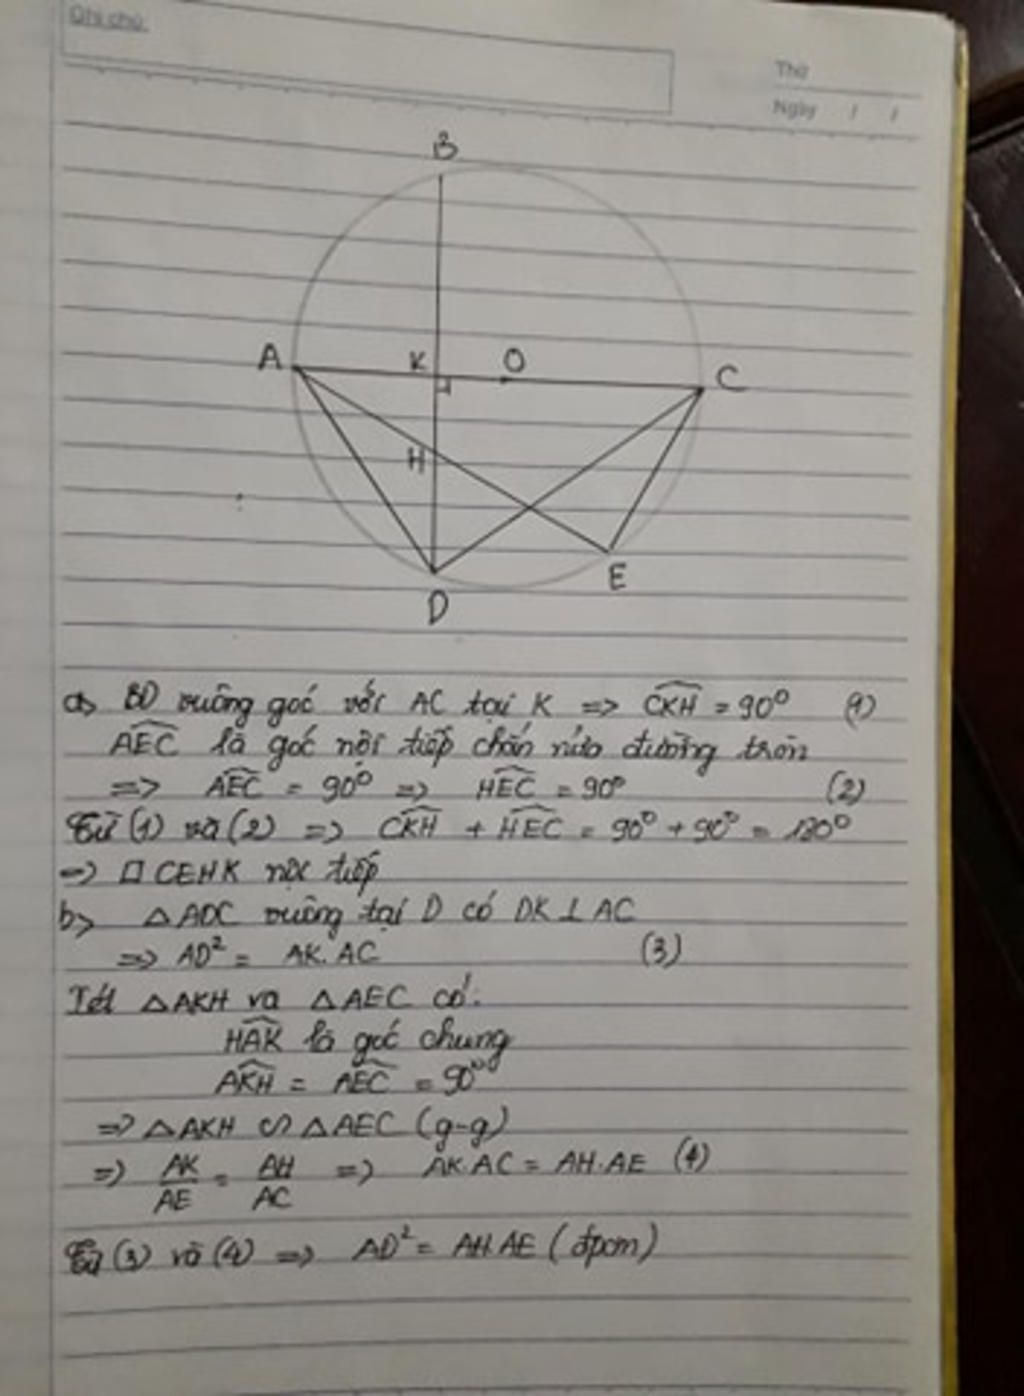 Ghi chú:
Thứ
Ngày / /
B
A K O C
H
D E
a> BD vuông góc với AC tại K => \widehat{CKH} = 90° (1)
\widehat{AEC} là góc nội tiếp chắn nửa đường tròn
=> \widehat{AEC} = 90° => \widehat{HEC} = 90° (2)
Từ (1) và (2) => \widehat{CKH} + \widehat{HEC} = 90° + 90° = 180°
=> □ CEHK nội tiếp
b> △ADC vuông tại D có DK ⊥ AC
=> AD² = AK.AC (3)
Xét △AKH và △AEC có:
\widehat{HAK} là góc chung
\widehat{AKH} = \widehat{AEC} = 90°
=> △AKH ∽ △AEC (g-g)
=> AK/AE = AH/AC => AK.AC = AH.AE (4)
Từ (3) và (4) => AD² = AH.AE (đpcm)